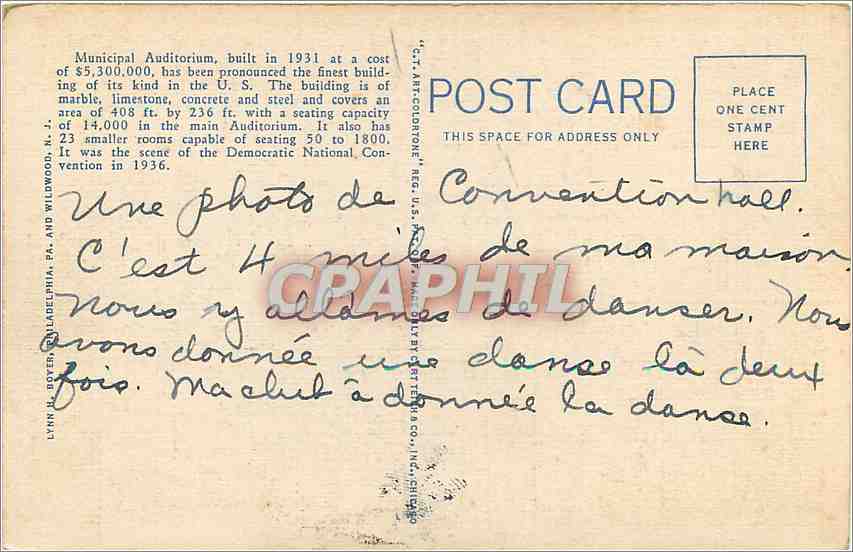 Municipal Auditorium, built in 1931 at a cost
of $5,300,000, has been pronounced the finest build-
ing of its kind in the U. S. The building is of
marble, limestone, concrete and steel and covers an
area of 408 ft. by 236 ft. with a seating capacity
of 14,000 in the main Auditorium. It also has
23 smaller rooms capable of seating 50 to 1800.
It was the scene of the Democratic National Con-
vention in 1936.
POST CARD
THIS SPACE FOR ADDRESS ONLY
PLACE
ONE CENT
STAMP
HERE
LYNN H. BOYER, PHILADELPHIA, PA. AND WILDWOOD, N. J.
"C. T. ART-COLORTONE" REG. U. S. PAT. OFF. MADE ONLY BY CURT TEICH & CO., INC., CHICAGO
Une photo de Convention hall.
C'est 4 miles de ma maison.
Nous y allâmes de danser. Nous
avons donnée une danse là deux
fois. Ma club à donnée la danse.
CPAPHIL